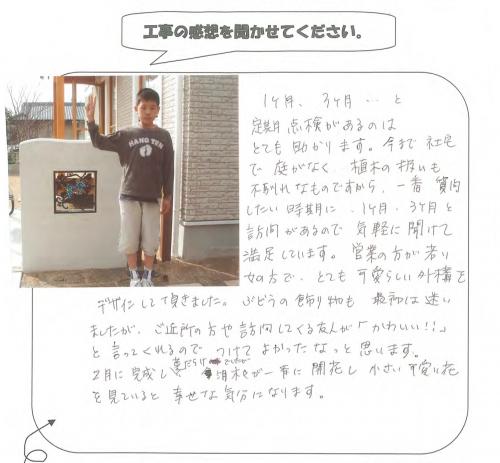 工事の感想を聞かせてください。
HANG TEN
1ヶ月、3ヶ月…と
定期点検があるのは
とても助かります。今まで社宅
で庭がなく、植木の扱いも
不慣れなものですから、一番質問
したい時期に、1ヶ月、3ヶ月と
訪問があるので気軽に聞けて
満足しています。営業の方が若い
女の方で、とても可愛らしい外構を
デザインして頂きました。ぶどうの飾り物も最初は迷い
ましたが、ご近所の方や訪問してくる友人が「かわいい!!」
と言ってくれるのでつけてよかったなっと思います。
2月に完成し、 植木が一斉に開花し小さい可愛い花
を見ていると幸せな気分になります。